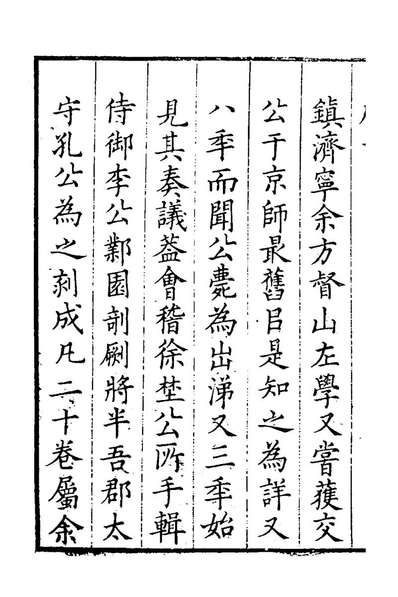 鎮濟寧余方督山左學又嘗獲交
公于京師最舊㠯是知之為詳又
八年而聞公薨為出涕又三年始
見其奏議葢會稽徐埜公所手輯
侍御李公鄴園剞劂將半吾郡太
守孔公為之刻成凡二十卷屬余